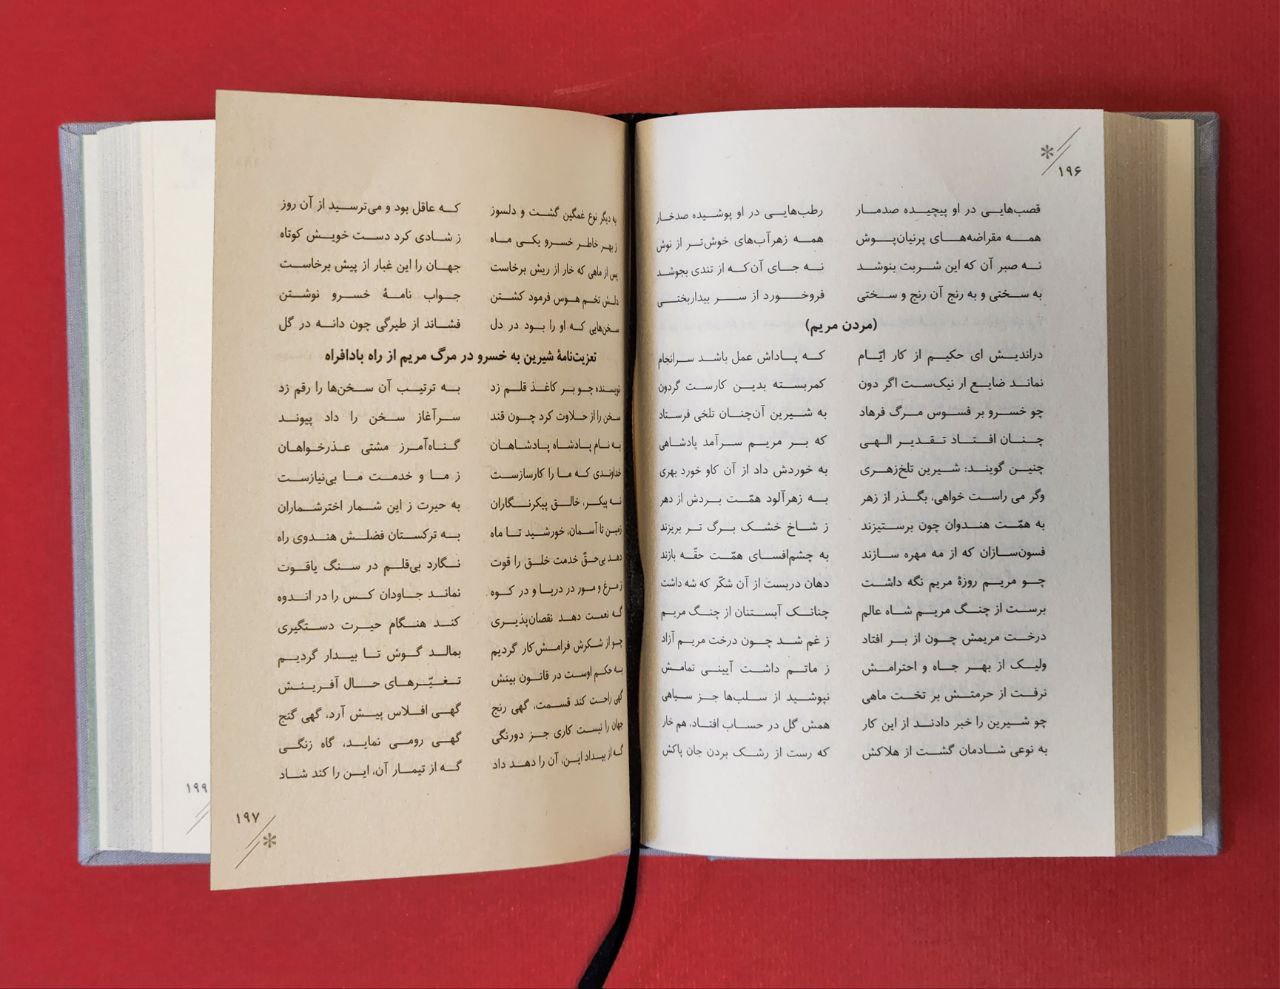 ۱۹۶
قصب‌هایی در او پیچیده صدمار رطب‌هایی در او پوشیده صدخار
همه مقراضه‌های پرنیان‌پوش همه زهرآب‌های خوش‌تر از نوش
نه صبر آن که این شربت بنوشد نه جای آن‌که از تندی بجوشد
به سختی و به رنج آن رنج و سختی فروخورد از سر بیداربختی
(مردن مریم)
دراندیش ای حکیم از کار ایّام که پاداش عمل باشد سرانجام
نماند ضایع ار نیک‌ست اگر دون کمربسته بدین کارست گردون
چو خسرو بر فسوس مرگ فرهاد به شیرین آن‌چنان تلخی فرستاد
چنان افتاد تقدیر الهی که بر مریم سرآمد پادشاهی
چنین گویند: شیرین تلخ‌زهری به خوردش داد از آن کاو خورد بهری
وگر می راست خواهی، بگذر از زهر به زهرآلود همّت بردش از دهر
به همّت هندوان چون برستیزند ز شاخ خشک برگ تر بریزند
فسون‌سازان که از مه مهره سازند به چشم‌افسای همّت حقّه بازند
چو مریم روزهٔ مریم نگه داشت دهان دربست از آن شکّر که شه داشت
برست از چنگ مریم شاه عالم چنانک آبستنان از چنگ مریم
درخت مریمش چون از بر افتاد ز غم شد چون درخت مریم آزاد
ولیک از بهر جاه و احترامش ز ماتم داشت آیینی تمامش
نرفت از حرمتش بر تخت ماهی نپوشید از سلب‌ها جز سیاهی
چو شیرین را خبر دادند از این کار همش گل در حساب افتاد، هم خار
به نوعی شادمان گشت از هلاکش که رست از رشک بردن جان پاکش
به دیگر نوع غمگین گشت و دلسوز که عاقل بود و می‌ترسید از آن روز
ز بهر خاطر خسرو یکی ماه ز شادی کرد دست خویش کوتاه
پس از ماهی که خار از ریش برخاست جهان را این غبار از پیش برخاست
دلش تخم هوس فرمود کشتن جواب نامهٔ خسرو نوشتن
سخن‌هایی که او را بود در دل فشاند از طیرگی چون دانه در گل
تعزیت‌نامهٔ شیرین به خسرو در مرگ مریم از راه بادافراه
نویسنده چو بر کاغذ قلم زد به ترتیب آن سخن‌ها را رقم زد
سخن را از حلاوت کرد چون قند سرآغاز سخن را داد پیوند
به نام پادشاه پادشاهان گناه‌آمرز مشتی عذرخواهان
خداوندی که ما را کارسازست ز ما و خدمت ما بی‌نیازست
نه پیکر، خالق پیکرنگاران به حیرت ز این شمار اخترشماران
زمین تا آسمان، خورشید تا ماه به ترکستان فضلش هندوی راه
دهد بی‌حقّ خدمت خلق را قوت نگارد بی‌قلم در سنگ یاقوت
ز مرغ و مور در دریا و در کوه نماند جاودان کس را در اندوه
گه نعمت دهد نقصان‌پذیری کند هنگام حیرت دستگیری
چو از شکرش فرامش‌کار گردیم بمالد گوش تا بیدار گردیم
به حکم اوست در قانون بینش تغیّرهای حال آفرینش
گهی راحت کند قسمت، گهی رنج گهی افلاس پیش آرد، گهی گنج
جهان را نیست کاری جز دورنگی گهی رومی نماید، گاه زنگی
گه از بیداد این، آن را دهد داد گه از تیمار آن، این را کند شاد
۱۹۷
۱۹۹